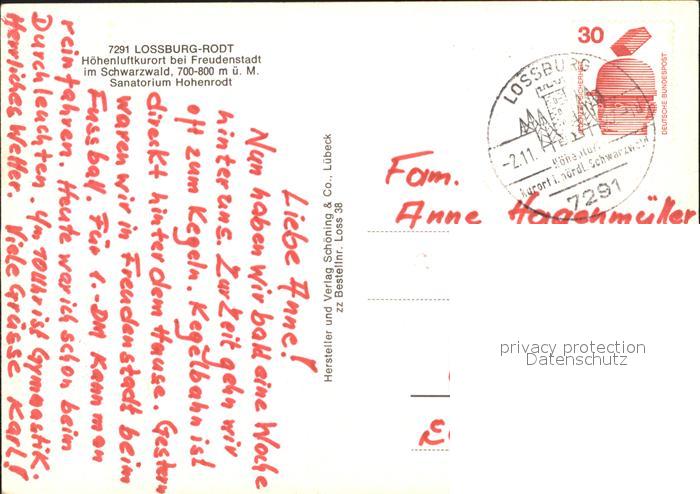 7291 LOSSBURG-RODT
Höhenluftkurort bei Freudenstadt
im Schwarzwald, 700-800 m ü. M.
Sanatorium Hohenrodt
Liebe Anne!
Nun haben wir bald eine Woche
hinter uns. Zur Zeit gehn wir
oft zum Kegeln. Kegelbahn ist
direkt hinter dem Hause. Gestern
waren wir in Freudenstadt beim
Fussball. Für 1.-DM kann man
reinfahren. Heute war ich schon beim
Durchleuchten. Um 10 Uhr ist Gymnastik.
Herrliches Wetter. Viele Grüsse Karl!
Hersteller und Verlag Schöning & Co., Lübeck
zz Bestellnr. Loss 38
30
DEUTSCHE BUNDESPOST
LOSSBURG
-2.11.
Höhenluft-
kurort i. nördl. Schwarzwald
7291
Fam.
Anne Hagenmüller
privacy protection
Datenschutz